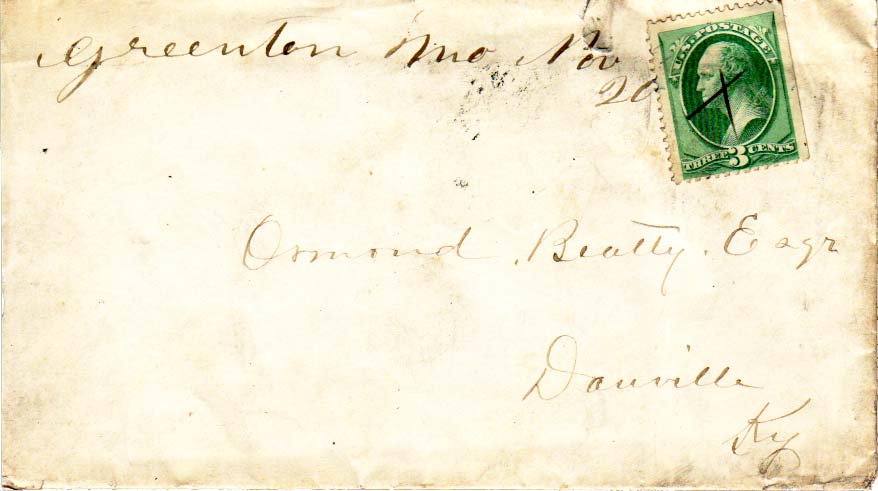 Greenton Mo Nov
20
U.S. POSTAGE
THREE 3 CENTS
Ormond Beatty Esqr
Danville
Ky